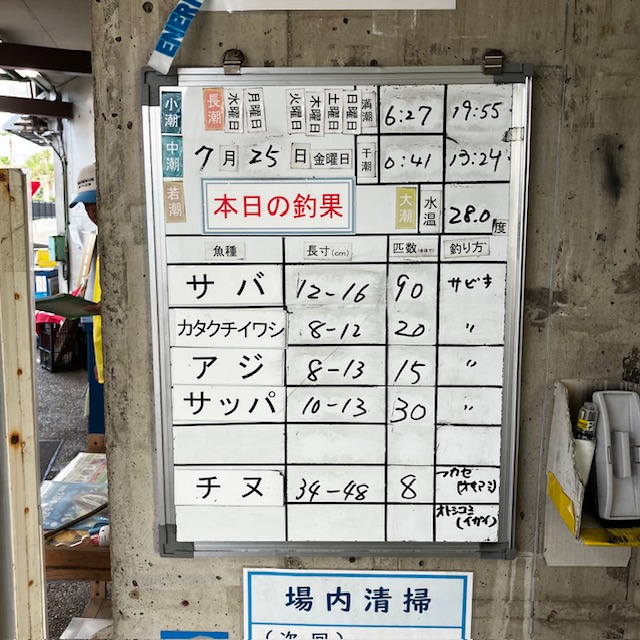 ENERG
小潮 長潮 水曜日 月曜日 火曜日 木曜日 土曜日 日曜日 満潮 6:27 19:55
中潮 7月25日 金曜日 干潮 0:41 13:24
若潮 本日の釣果 大潮 水温 28.0度
魚種 長寸(cm) 匹数 釣り方
サバ 12-16 90 サビキ
カタクチイワシ 8-12 20 〃
アジ 8-13 15 〃
サッパ 10-13 30 〃
チヌ 34-48 8 フカセ
(オキアミ)
オトシコミ
(イガイ)
場内清掃
(次回)